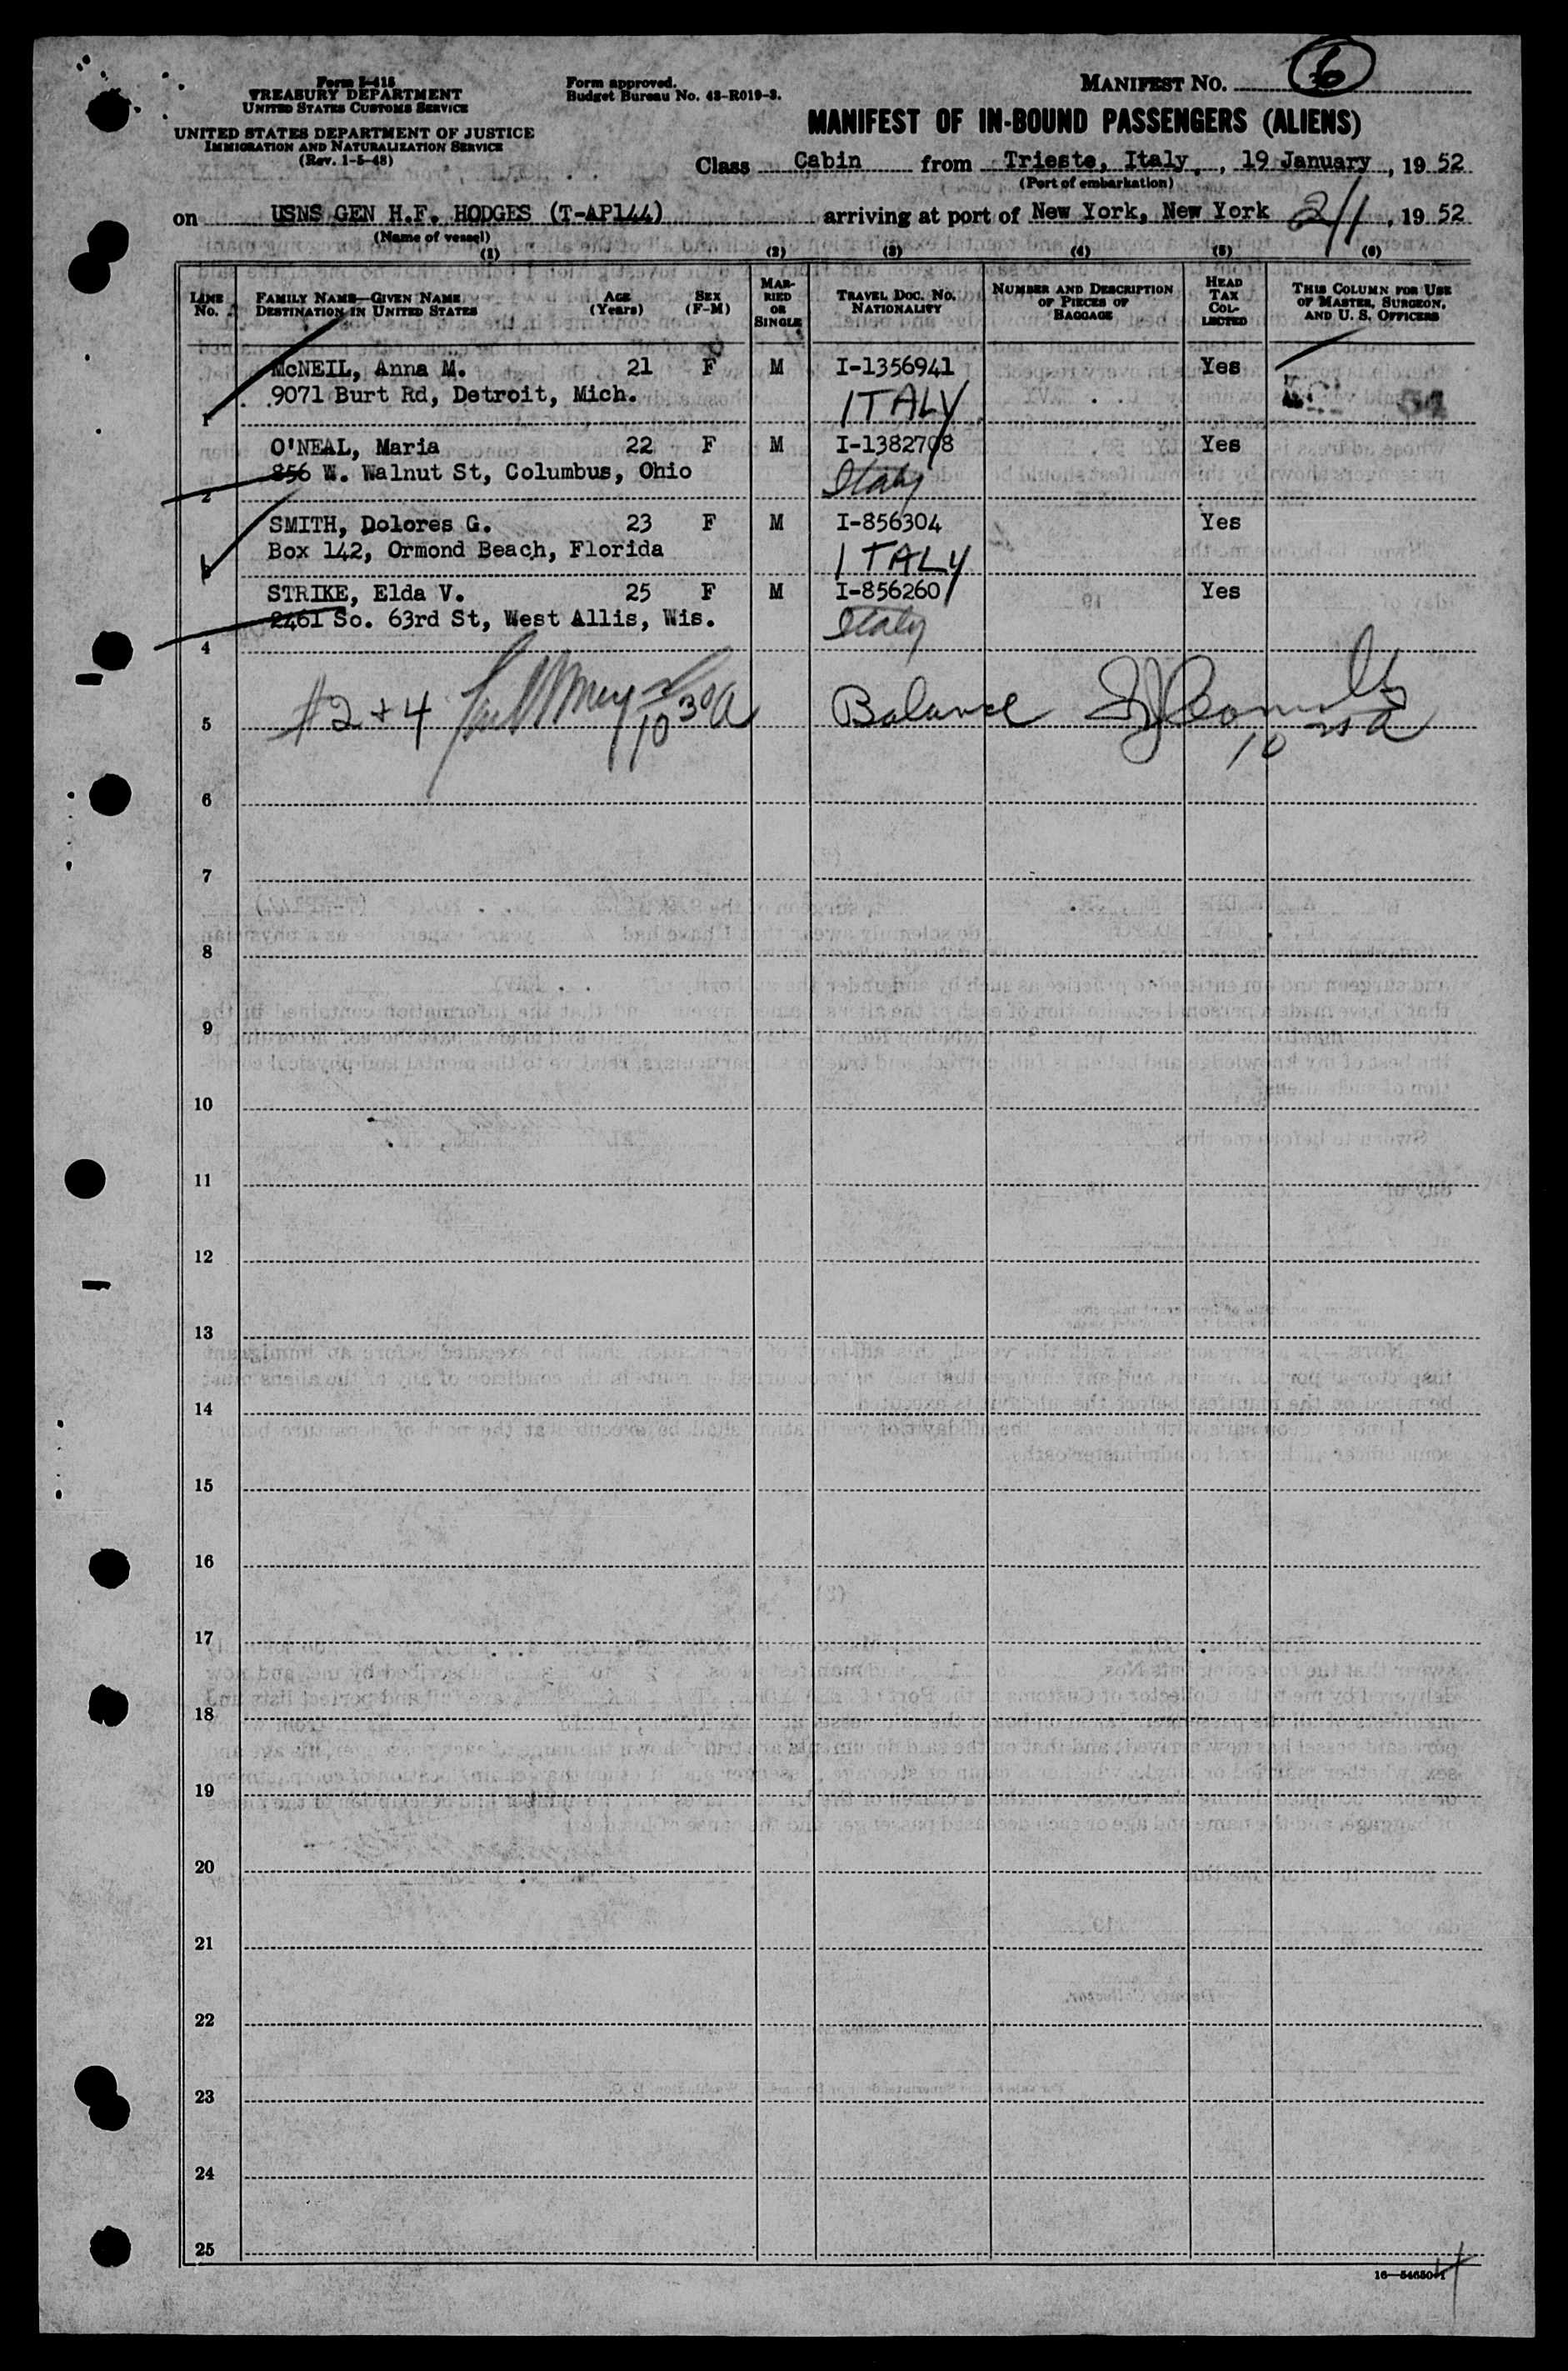 Form I-415
TREASURY DEPARTMENT
UNITED STATES CUSTOMS SERVICE
UNITED STATES DEPARTMENT OF JUSTICE
IMMIGRATION AND NATURALIZATION SERVICE
(Rev. 1-5-48)
Form approved.
Budget Bureau No. 43-R019-3.
MANIFEST NO. 6
MANIFEST OF IN-BOUND PASSENGERS (ALIENS)
Class Cabin from Trieste, Italy, 19 January, 1952
(Port of embarkation)
on USNS GEN H.F. HODGES (T-AP144) arriving at port of New York, New York 2/1, 1952
(Name of vessel)
(1) (2) (3) (4) (5) (6)
LINE No. FAMILY NAME—GIVEN NAME DESTINATION IN UNITED STATES AGE (Years) SEX (F-M) MARRIED OR SINGLE TRAVEL DOC. NO. NATIONALITY NUMBER AND DESCRIPTION OF PIECES OF BAGGAGE HEAD TAX COLLECTED THIS COLUMN FOR USE OF MASTER, SURGEON, AND U. S. OFFICERS
McNEIL, Anna M. 21 F M I-1356941 Yes
1 9071 Burt Rd, Detroit, Mich. ITALY
O'NEAL, Maria 22 F M I-1382708 Yes
2 856 W. Walnut St, Columbus, Ohio Italy
SMITH, Dolores G. 23 F M I-856304 Yes
3 Box 142, Ormond Beach, Florida ITALY
STRIKE, Elda V. 25 F M I-856260 Yes
4 2461 So. 63rd St, West Allis, Wis. Italy
5 #2 + 4 10 30 A Balance
6
7
8
9
10
11
12
13
14
15
16
17
18
19
20
21
22
23
24
25